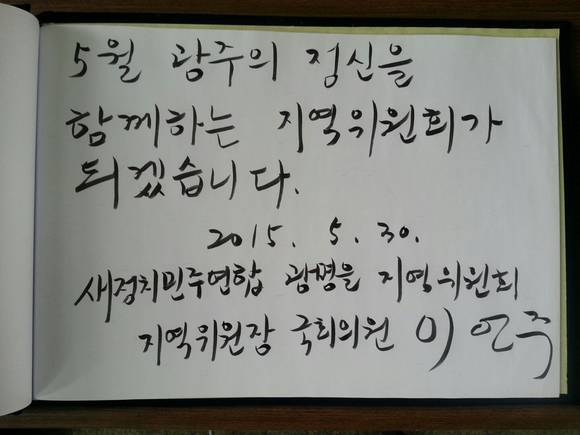 5월 광주의 정신을
함께하는 지역위원회가
되겠습니다.
2015. 5. 30.
새정치민주연합 광명을 지역위원회
지역위원장 국회의원 이언주